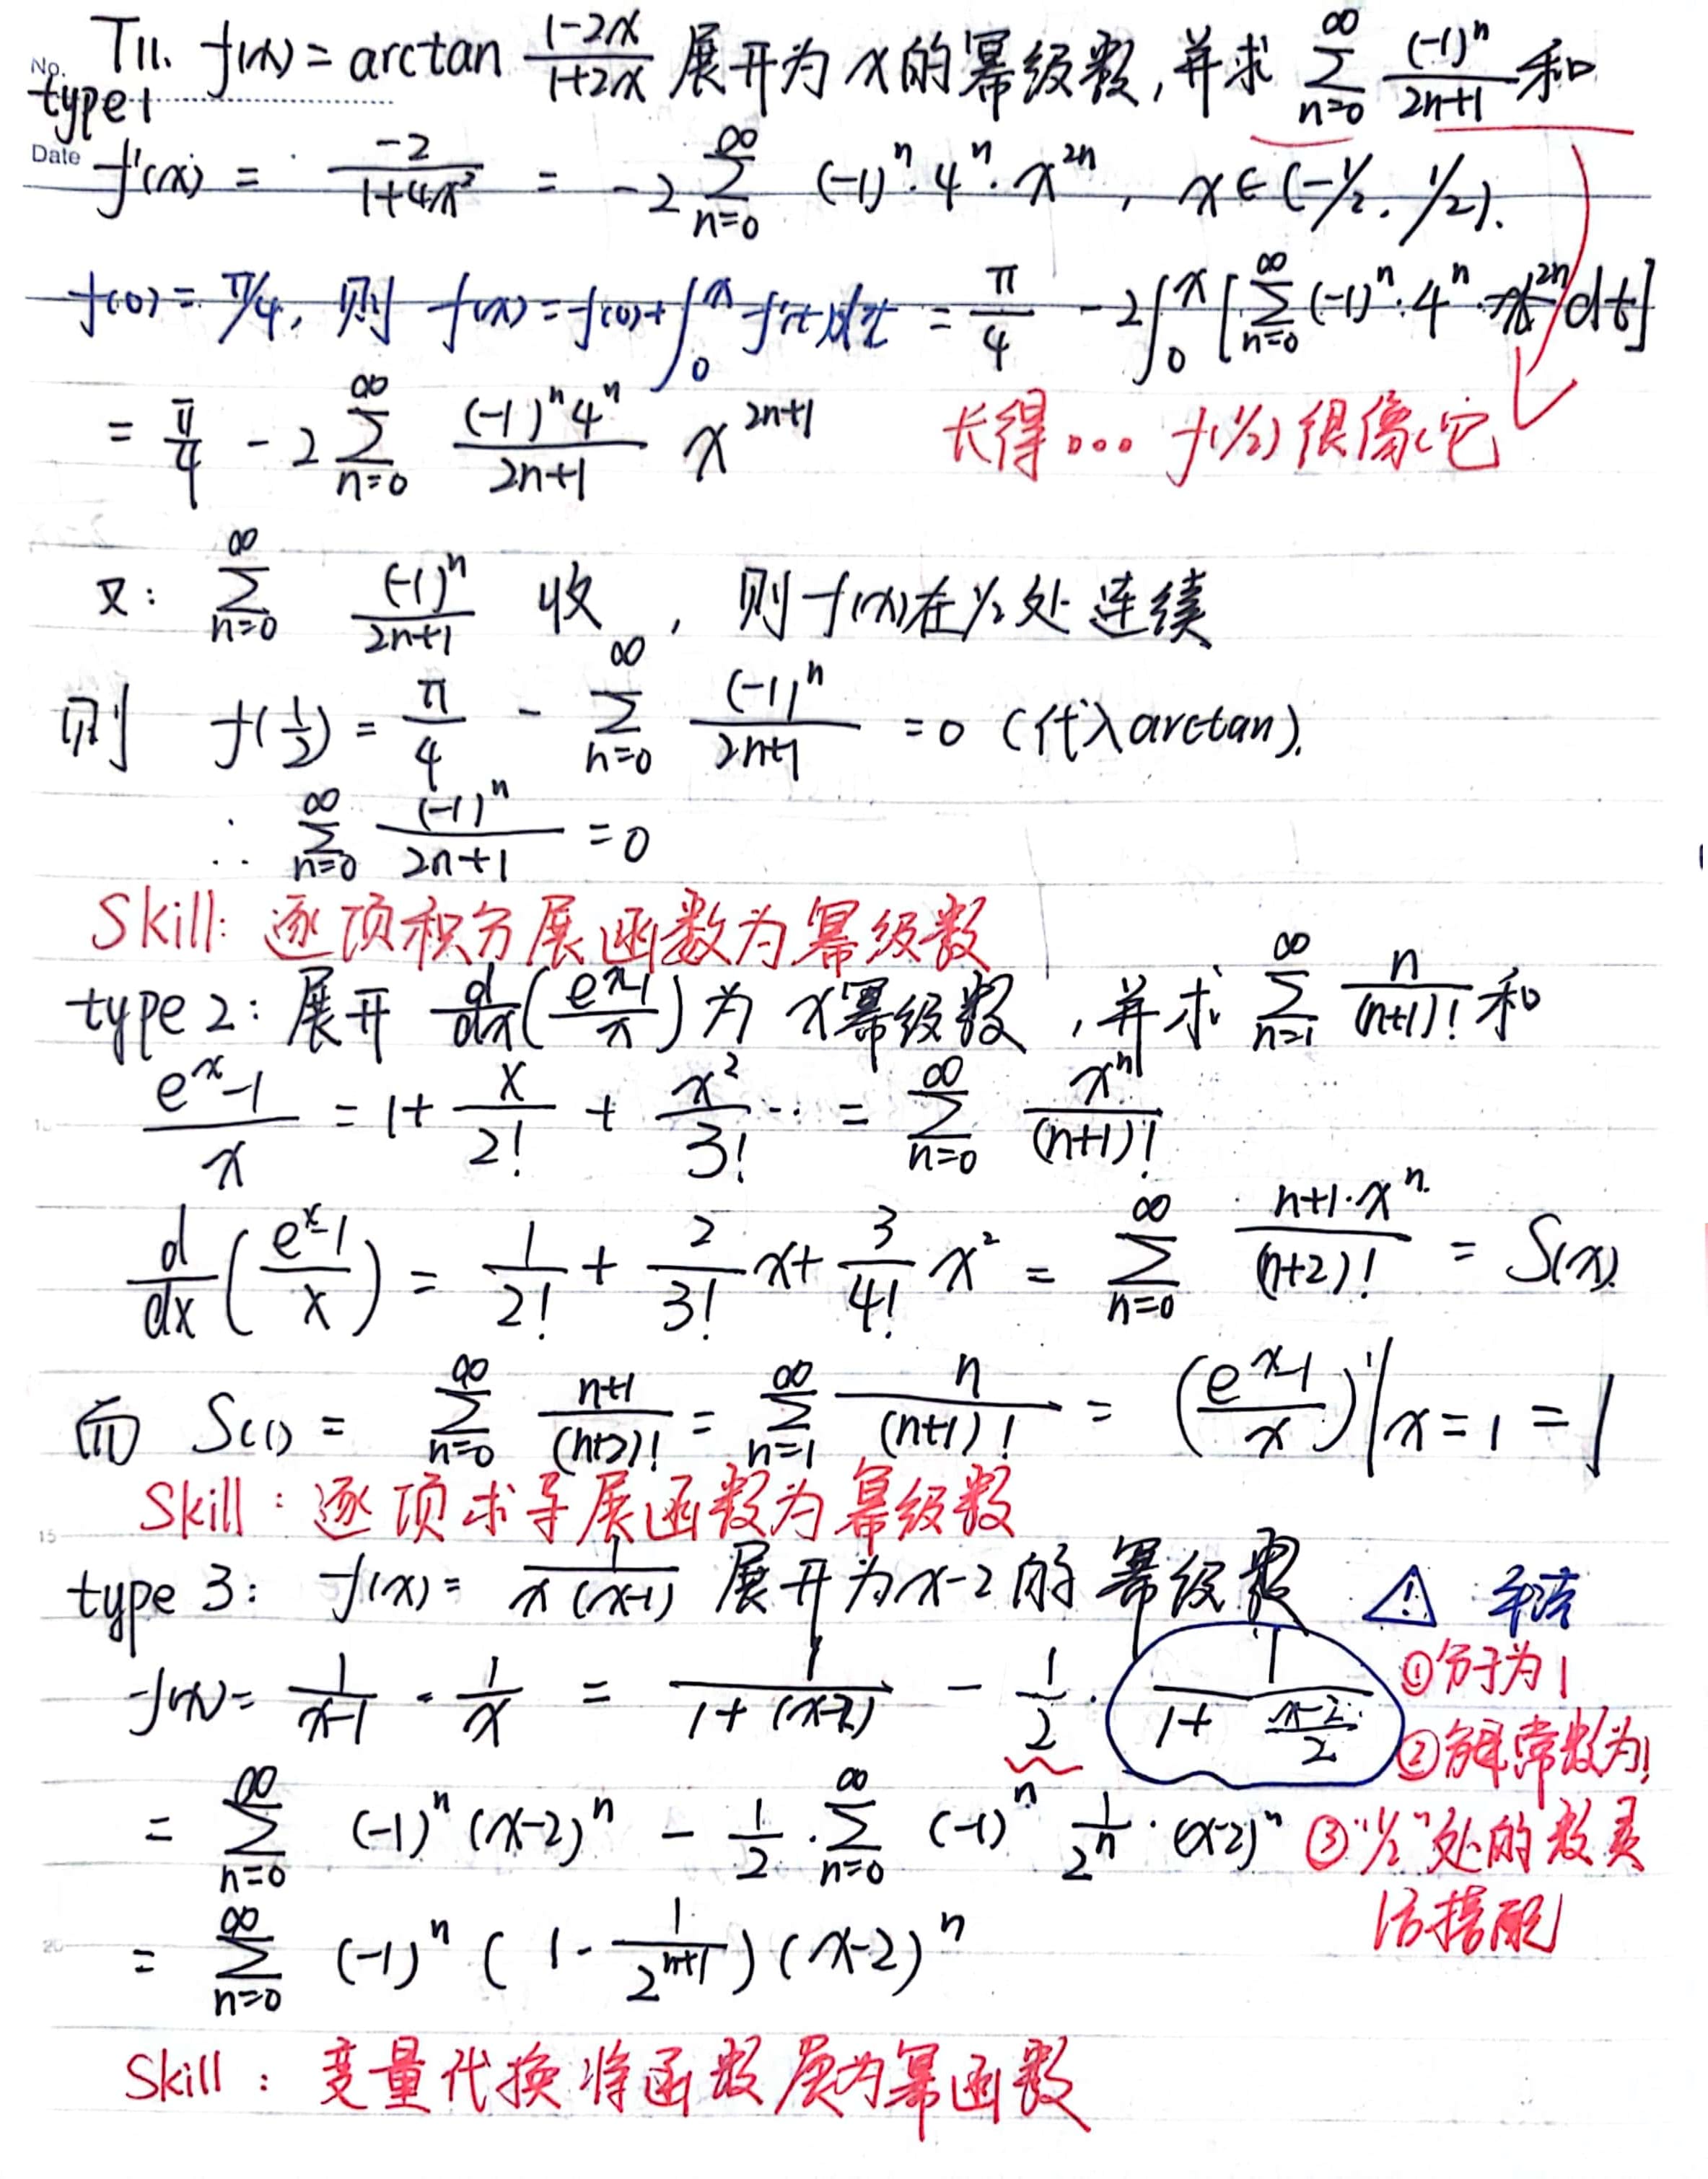 No.
T11. f(x) = arctan (1-2x)/(1+2x) 展开为 x 的幂级数, 并求 ∑_{n=0}^{∞} (-1)^n/(2n+1) 和
type 1
Date
f'(x) = -2/(1+4x²) = -2 ∑_{n=0}^{∞} (-1)^n · 4^n · x^{2n} , x ∈ (-1/2, 1/2).
f(0) = π/4, 则 f(x) = f(0) + ∫_0^x f'(t)dt = π/4 - 2∫_0^x [∑_{n=0}^{∞} (-1)^n · 4^n · t^{2n} dt]
= π/4 - 2 ∑_{n=0}^{∞} (-1)^n 4^n/(2n+1) x^{2n+1}
长得... f(1/2) 很像它
又: ∑_{n=0}^{∞} (-1)^n/(2n+1) 收, 则 f(x) 在 1/2 处连续
则 f(1/2) = π/4 - ∑_{n=0}^{∞} (-1)^n/(2n+1) = 0 (代入arctan).
∴ ∑_{n=0}^{∞} (-1)^n/(2n+1) = 0
Skill: 逐项积分展函数为幂级数
type 2: 展开 d/dx((e^x-1)/x) 为 x幂级数, 并求 ∑_{n=1}^{∞} n/(n+1)! 和
(e^x-1)/x = 1 + x/2! + x²/3! ··· = ∑_{n=0}^{∞} x^n/(n+1)!
d/dx((e^x-1)/x) = 1/2! + 2/3! x + 3/4! x² = ∑_{n=0}^{∞} n+1·x^n/(n+2)! = S(x).
而 S(1) = ∑_{n=0}^{∞} n+1/(n+2)! = ∑_{n=1}^{∞} n/(n+1)! = ((e^x-1)/x)'|x=1 = 1
Skill: 逐项求导展函数为幂级数
type 3: f(x) = 1/(x(x-1)) 展开为 x-2 的幂级数
f(x) = 1/(x-1) - 1/x = 1/(1+(x-2)) - 1/2 · 1/(1+(x-2)/2)
①分子为1
②分母常数为1
= ∑_{n=0}^{∞} (-1)^n (x-2)^n - 1/2 · ∑_{n=0}^{∞} (-1)^n 1/2^n · (x-2)^n
③"1/2"处的数灵
活搭配
= ∑_{n=0}^{∞} (-1)^n (1 - 1/2^{n+1}) (x-2)^n
Skill: 变量代换将函数展为幂函数